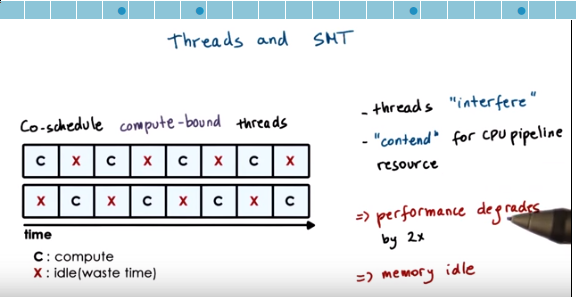 Threads and SMT
Co-schedule compute-bound threads
C X C X C X C X
X C X C X C X C
time
C: compute
X: idle(waste time)
- threads "interfere"
- "contend" for CPU pipeline
resource
=> performance degrades
by 2x
=> memory idle